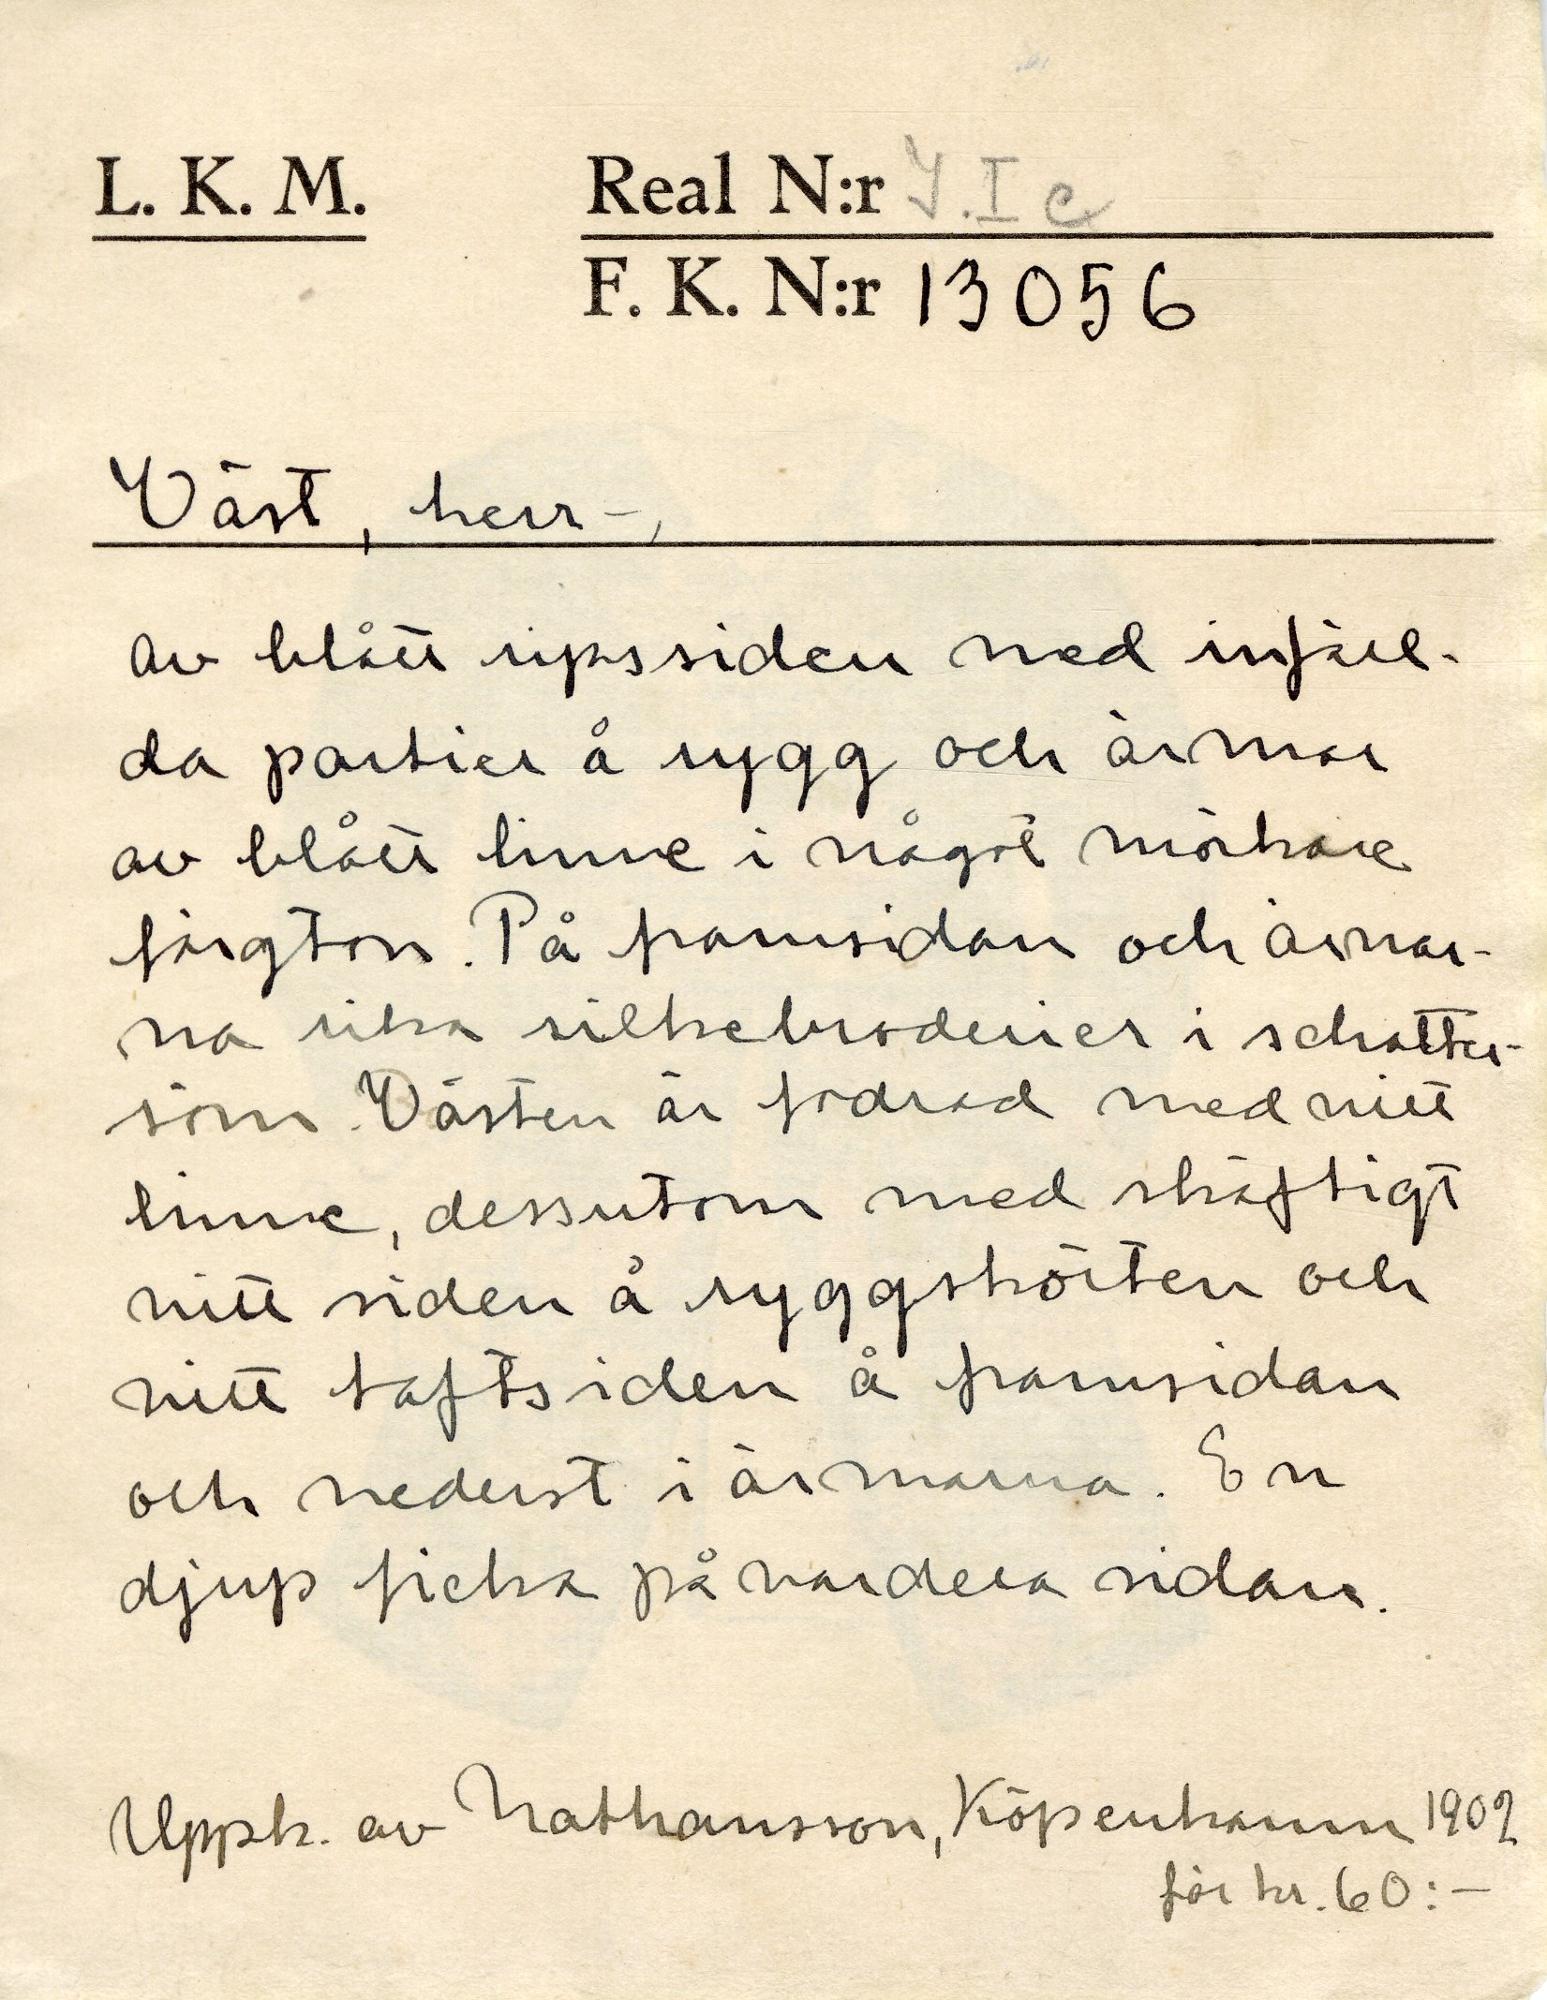 L. K. M.
Real N:r Y.I c
F. K. N:r 13056
Väst, herr-,
av blått ripssiden med infäll-
da partier å rygg och ärmar
av blått linne i något mörkare
färgton. På framsidan och ärmar-
na rika silkebroderier i schatter-
söm. Västen är fodrad med vitt
linne, dessutom med skäftigt
vitt siden å ryggskörten och
vitt taftsiden å framsidan
och nederst i ärmarna. En
djup ficka på vardera sidan.
Uppk. av Nathansson, Köpenhamn 1902
för kr. 60:-